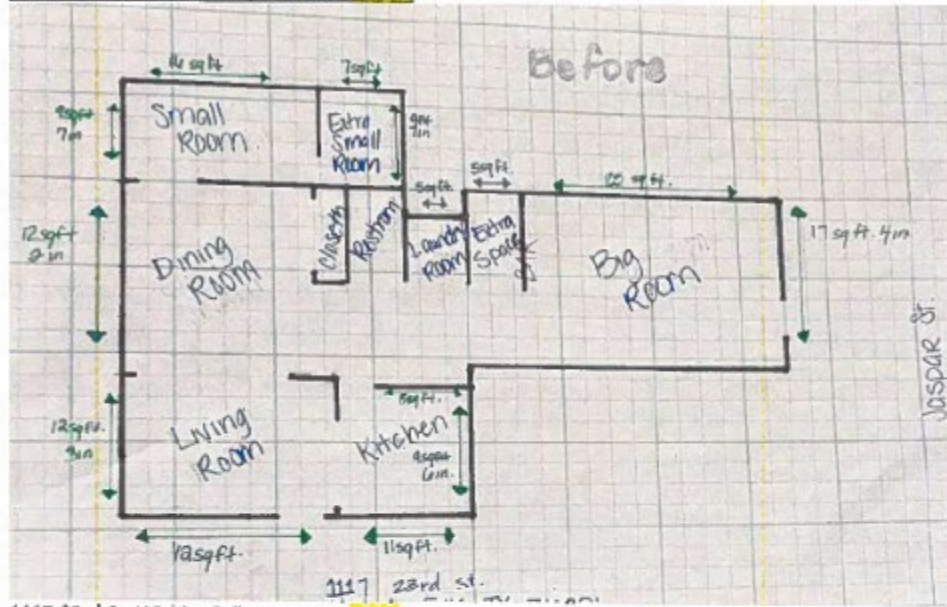 Before
14 sq ft
7 sq ft
9 sq ft
7 in
Small
Room
Extra
Small
Room
5 sq ft.
5 sq ft.
17 sq ft. 4 in
12 sq ft
2 in
Dining
Room
Closet
Restroom
Laundry
Room
Extra
Space
Big
Room
Jaspar St.
12 sq ft.
9 in
Living
Room
Kitchen
6 in.
12 sq ft.
11 sq ft.
1117 23rd st.